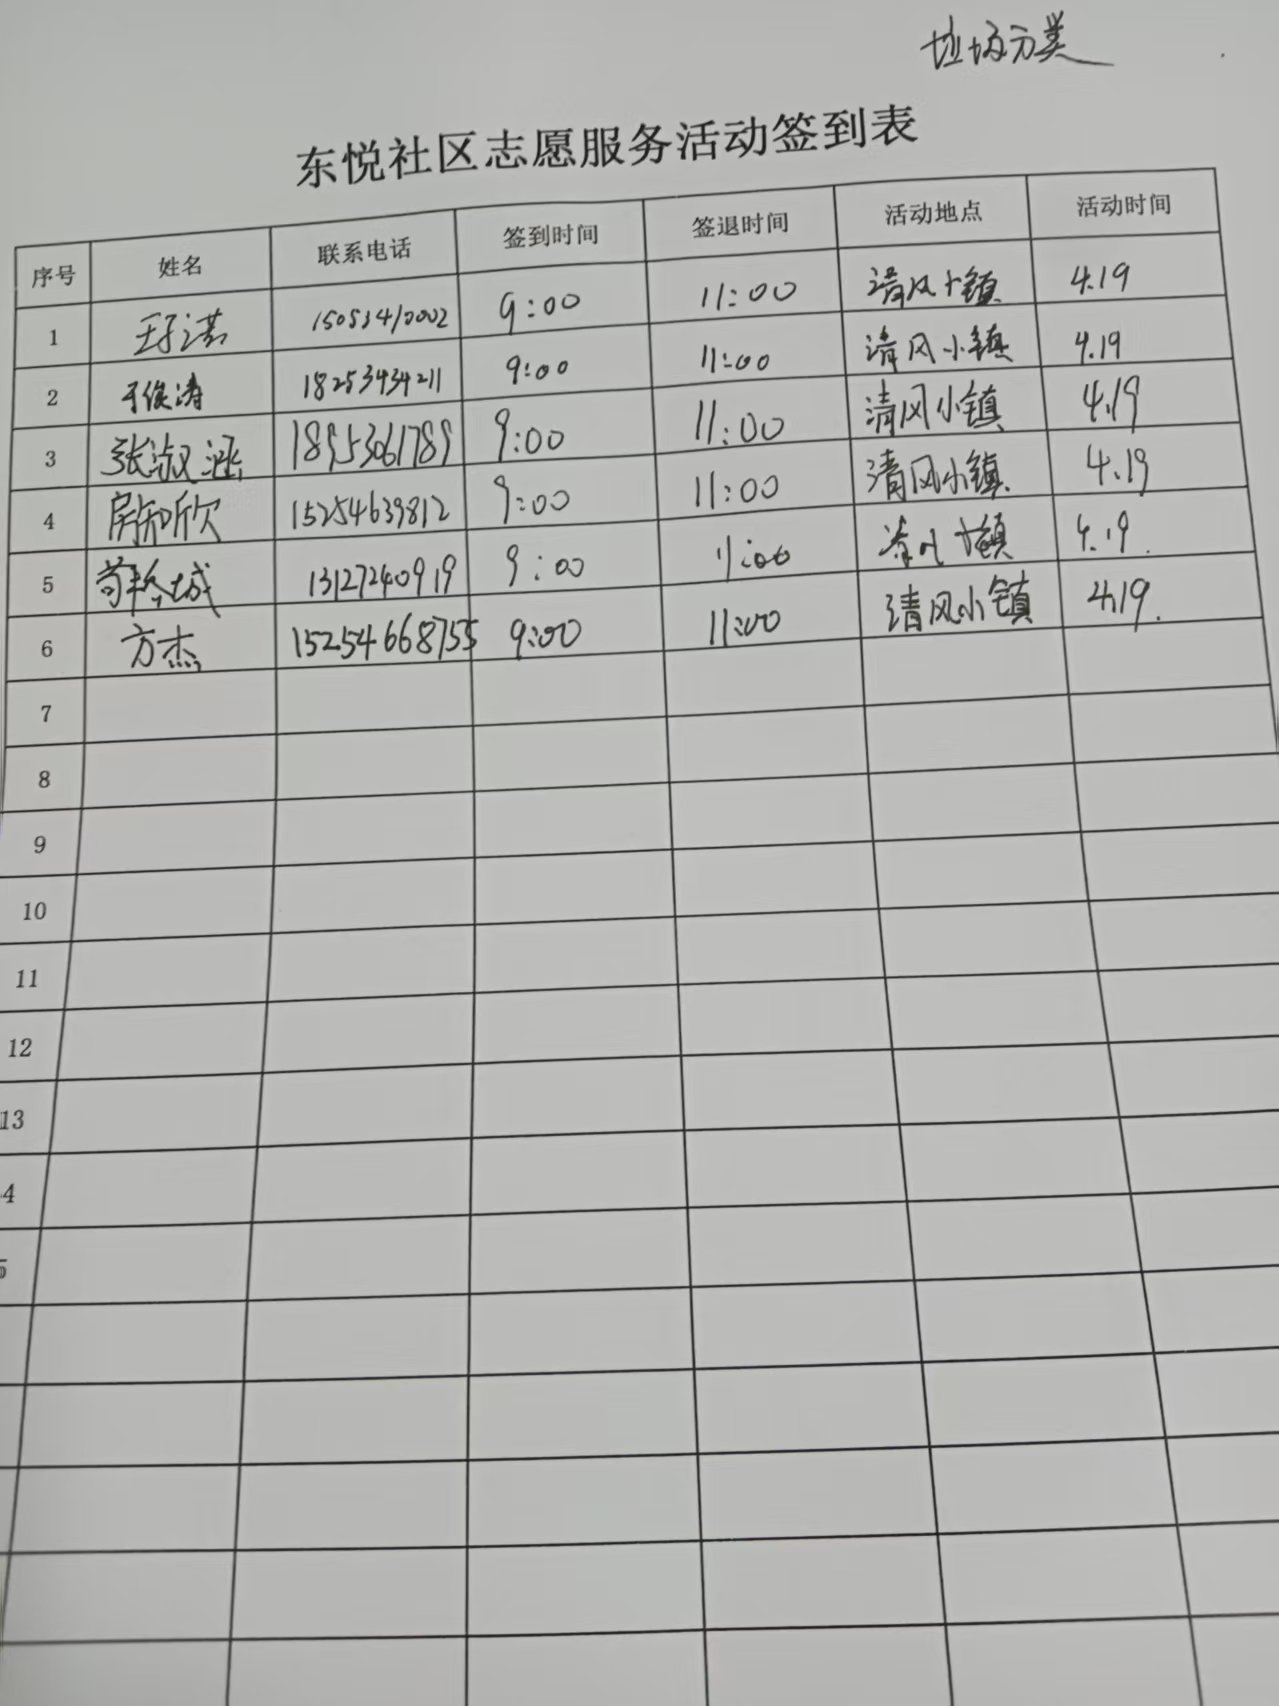 垃圾分类
东悦社区志愿服务活动签到表
序号 姓名 联系电话 签到时间 签退时间 活动地点 活动时间
1 15053410002 9:00 11:00 清风小镇 4.19
2 于俊涛 18253434211 9:00 11:00 清风小镇 4.19
3 张淑涵 18953061789 9:00 11:00 清风小镇 4.19
4 房知欣 15254639812 9:00 11:00 清风小镇 4.19
5 13127240919 9:00 11:00 清风小镇 4.19.
6 方杰 15254668755 9:00 11:00 清风小镇 4.19.
7
8
9
10
11
12
13
4
5